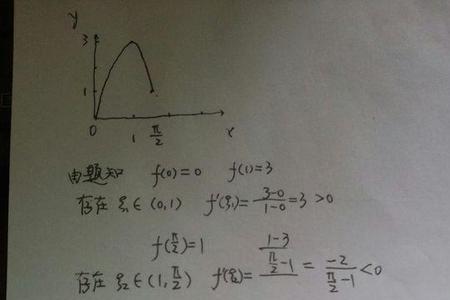 y
3
1
0 1 π/2 x
由题知 f(0)=0 f(1)=3
存在 ξ₁∈(0,1) f'(ξ₁)=(3-0)/(1-0)=3>0
f(π/2)=1
存在 ξ₂∈(1,π/2) f'(ξ₂)=(1-3)/(π/2-1)=-2/(π/2-1)<0